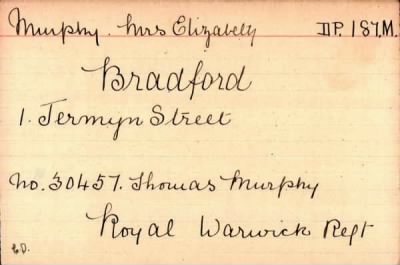 Murphy. Mrs Elizabeth DP. 187.M.
Bradford
1. Jermyn Street
No. 30457. Thomas Murphy
Royal Warwick Regt